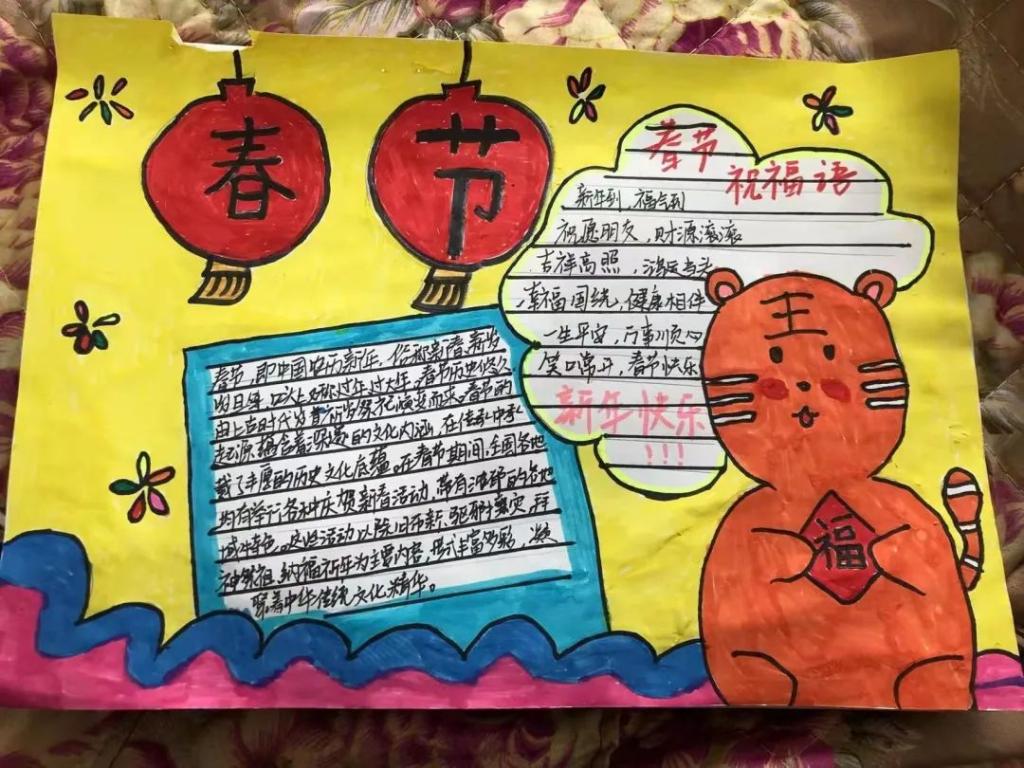 春
节
春节
祝福语
新年到，福气到
祝愿朋友，财源滚滚
吉祥高照，鸿运当头
幸福围绕，健康相伴
一生平安，万事顺心
笑口常开，春节快乐
新年快乐
!!!
王
福
春节，即中国农历新年，俗称新春、新岁
岁旦等，口头上又称过年、过大年。春节历史悠久
由上古时代岁首祈岁祭祀演变而来。春节的
起源蕴含着深邃的文化内涵，在传承中承
载了丰厚的历史文化底蕴。在春节期间，全国各地
均有举行各种庆贺新春活动，带有浓郁的各地
域特色。这些活动以除旧布新、驱邪攘灾、拜
神祭祖、纳福祈年为主要内容，形式丰富多彩，凝
聚着中华传统文化精华。